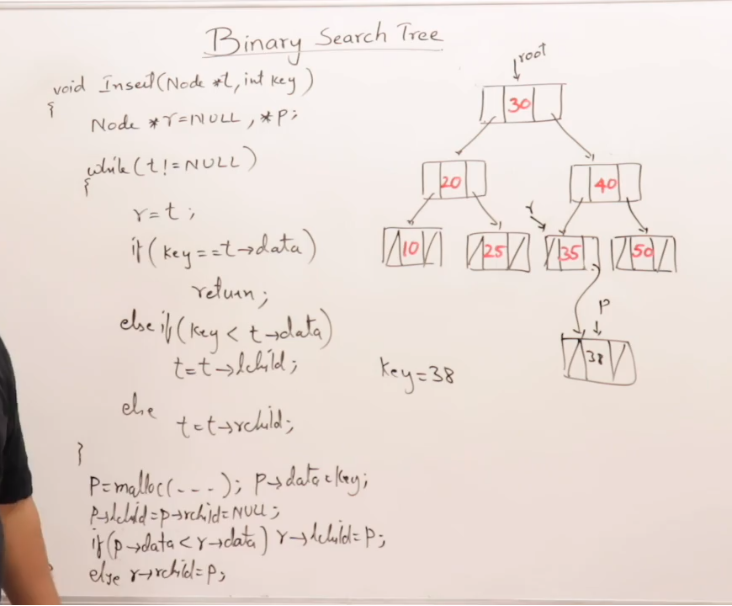 Binary Search Tree
void Insert(Node *t, int key)
{
Node *r=NULL, *p;
while(t!=NULL)
{
r=t;
if(key==t→data)
return;
else if(key<t→data)
t=t→lchild;
else
t=t→rchild;
}
P=malloc(----); p→data=key;
p→lchild=p→rchild=NULL;
if(p→data<r→data) r→lchild=p;
else r→rchild=p;
root
30
20 40
r
10 25 35 50
p
38
key=38